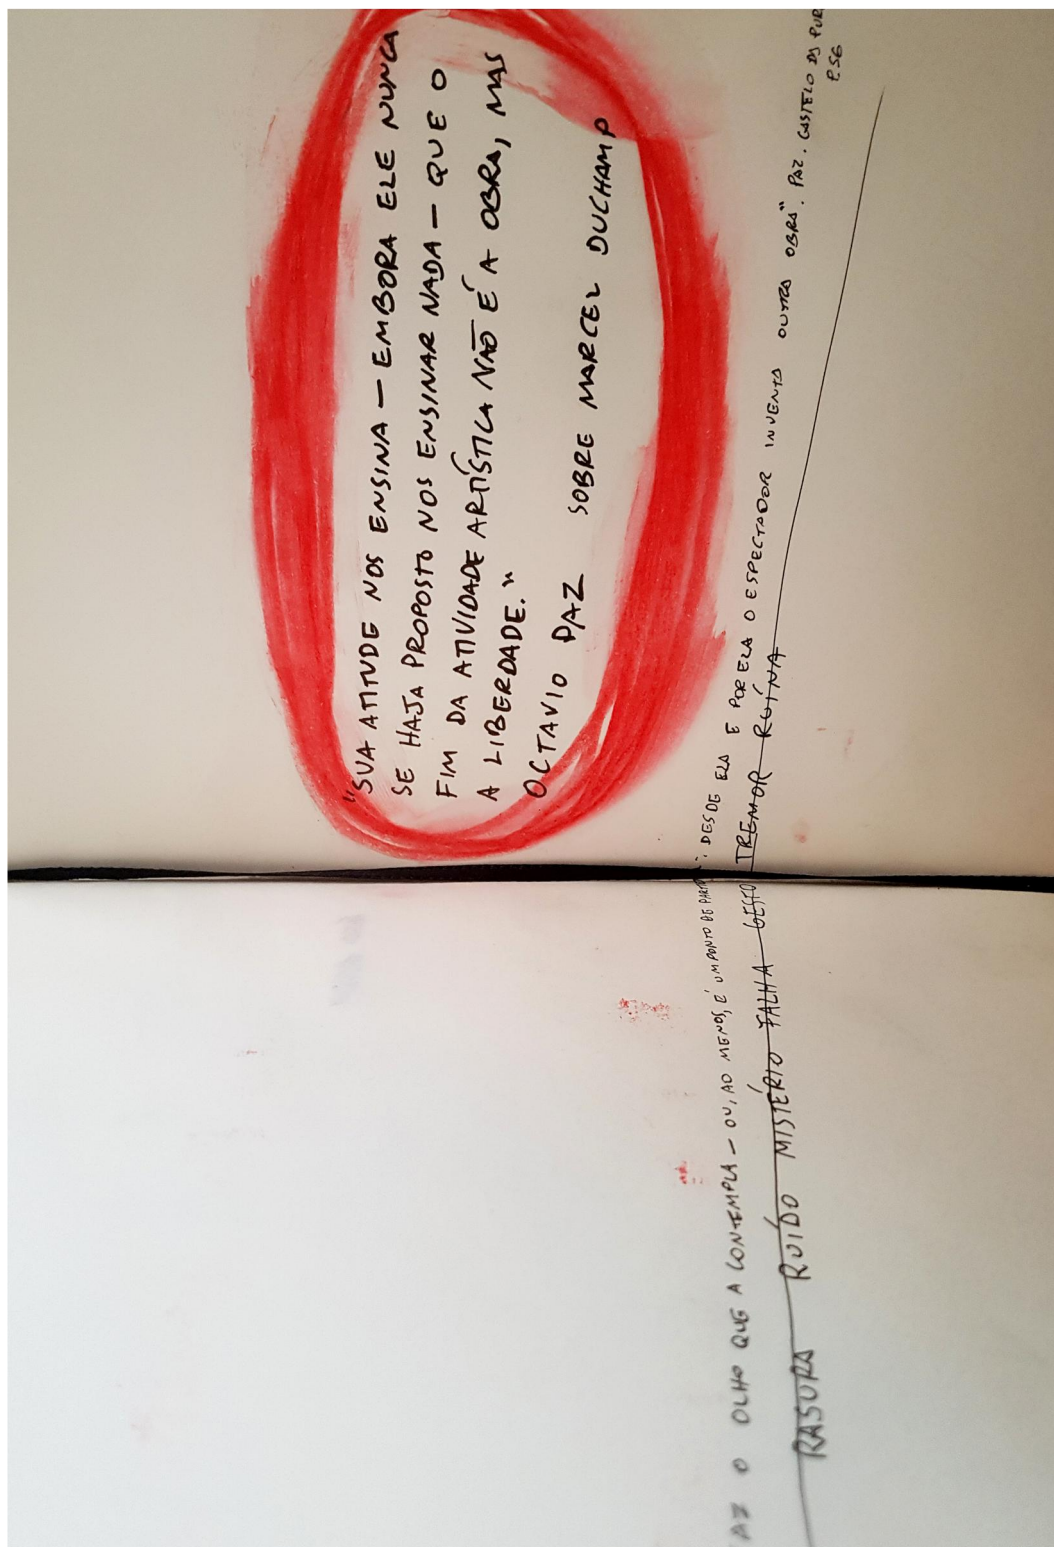 "SUA ATITUDE NOS ENSINA — EMBORA ELE NUNCA
SE HAJA PROPOSTO NOS ENSINAR NADA — QUE O
FIM DA ATIVIDADE ARTÍSTICA NÃO É A OBRA, MAS
A LIBERDADE."
OCTAVIO PAZ SOBRE MARCEL DUCHAMP
O OLHO QUE A CONTEMPLA — OU, AO MENOS, É UM PONTO DE PARTIDA: DESDE ELA E POR ELA O ESPECTADOR INVENTA OUTRA OBRA". PAZ. CASTELO DA
P.56
RASURA RUÍDO MISTÉRIO FALHA GESTO TREMOR RUÍNA